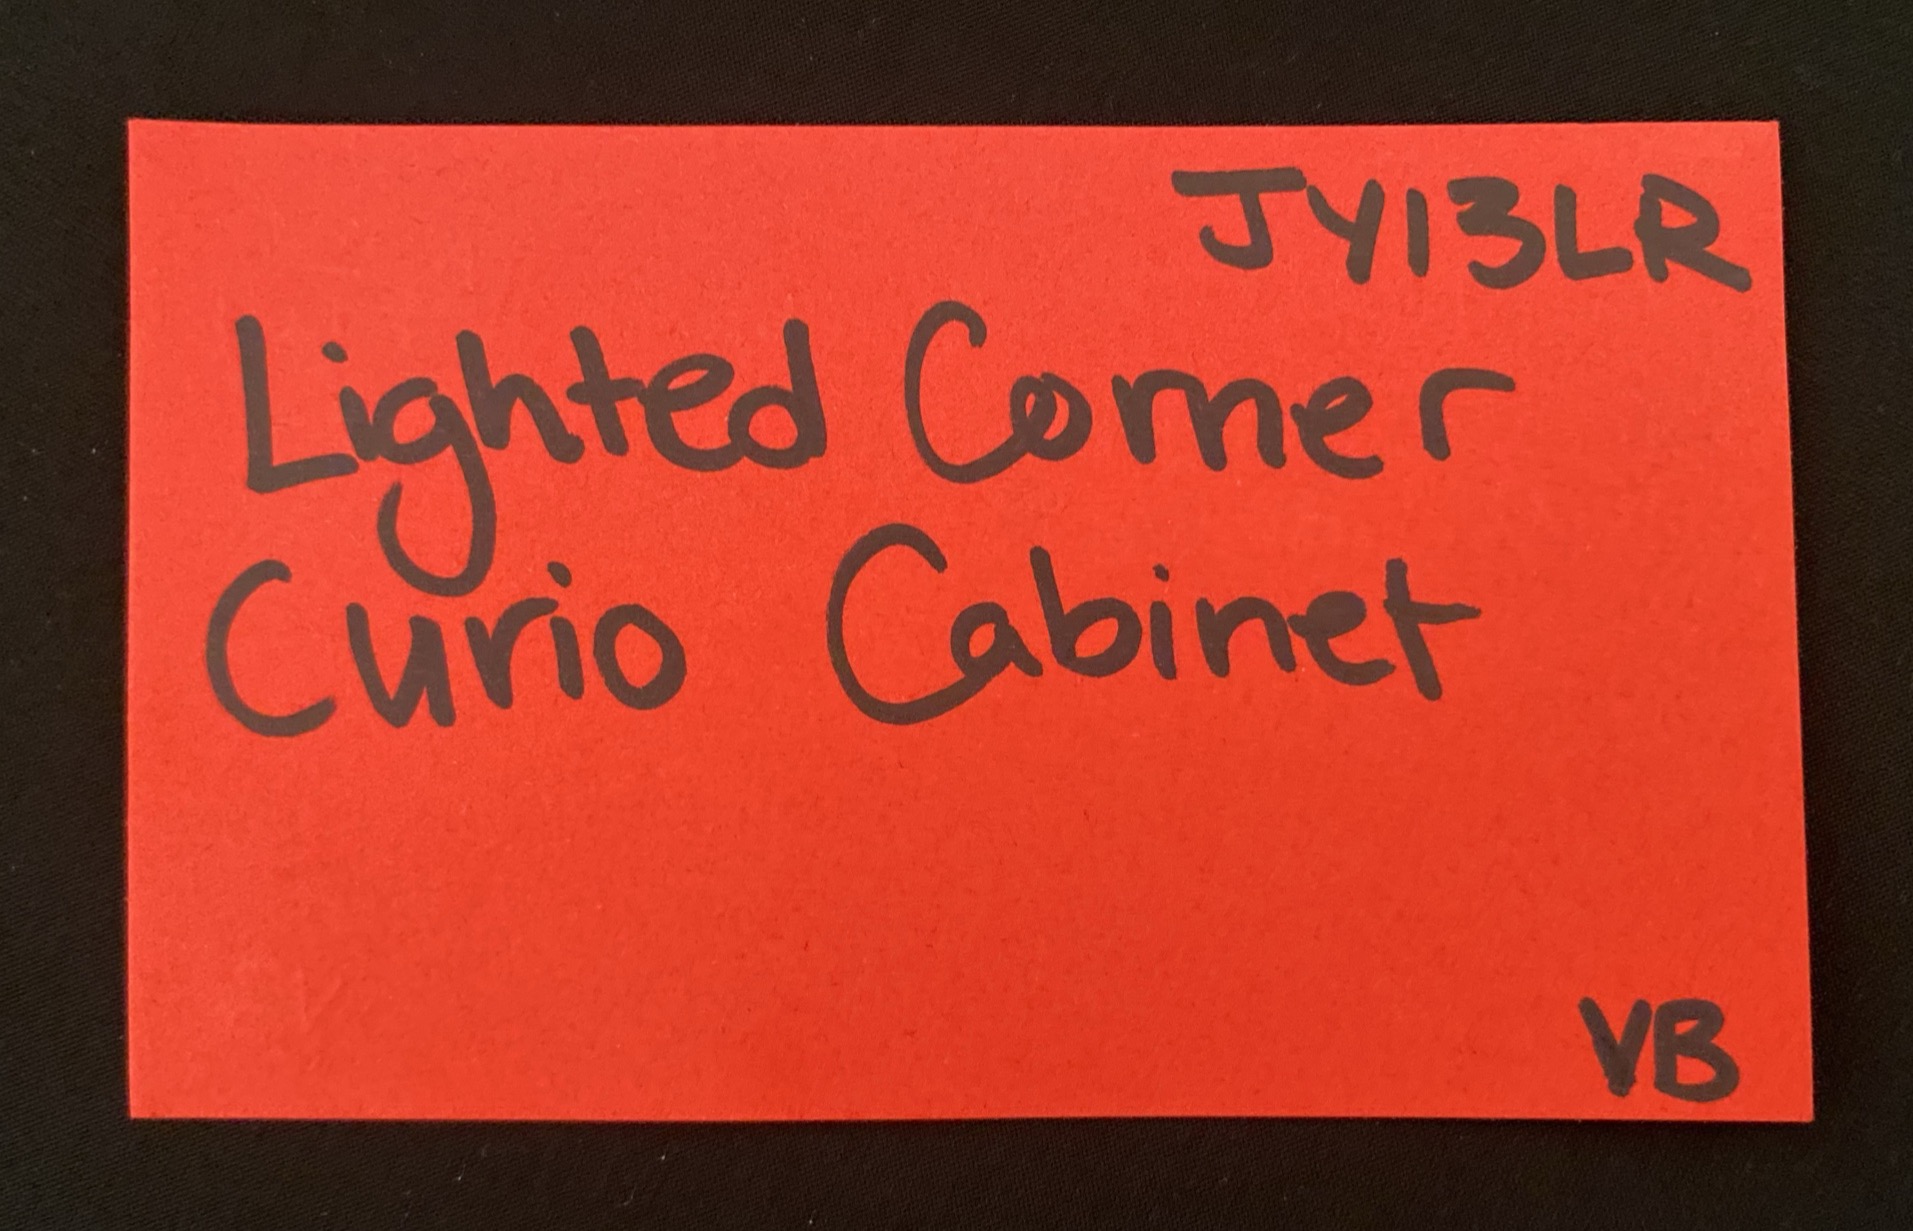 JY13LR
Lighted Corner
Curio Cabinet
VB